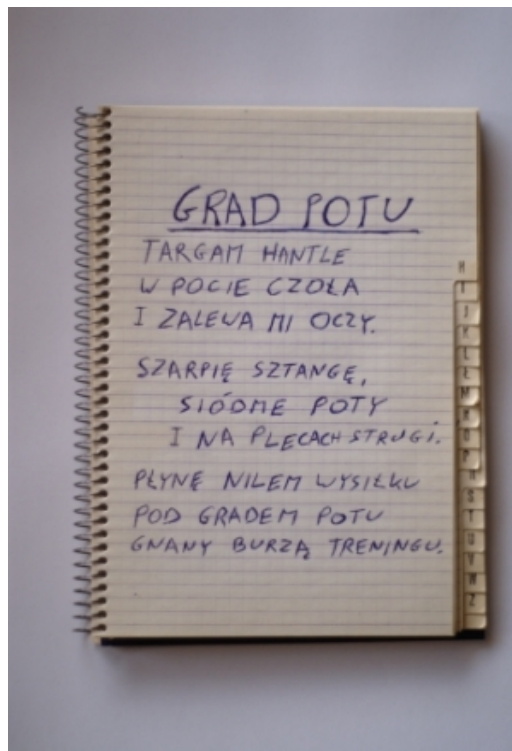 GRAD POTU
TARGAM HANTLE
W POCIE CZOŁA
I ZALEWA MI OCZY.
SZARPIĘ SZTANGĘ,
SIÓDME POTY
I NA PLECACH STRUGI.
PŁYNĘ NILEM WYSIŁKU
POD GRADEM POTU
GNANY BURZĄ TRENINGU.
H
I
J
K
L
Ł
M
N
O
P
R
S
T
U
V
W
Z